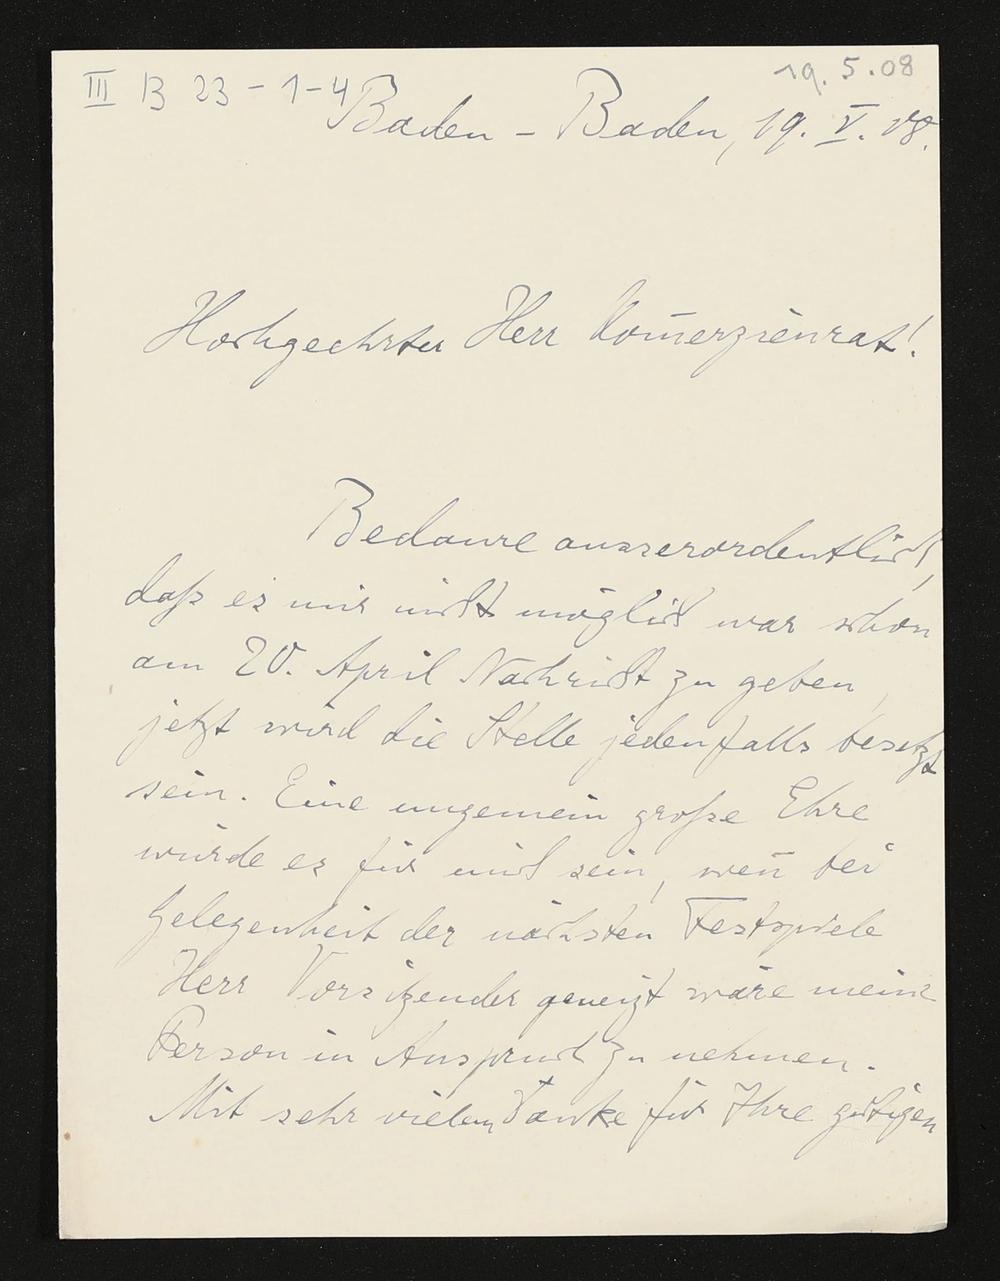 III B 23-1-4
19.5.08
Baden-Baden, 19. V. 08.
Hochgeehrter Herr Kom̅erzienrat!
Bedaure ausserordentlich,
daß es mir nicht möglich war schon
am 20. April Nachricht zu geben,
jetzt wird die Stelle jedenfalls besetzt
sein. Eine ungemein große Ehre
würde es für mich sein, wen̅ bei
Gelegenheit der nächsten Festspiele
Herr Vorsitzender geneigt wäre meine
Person in Anspruch zu nehmen.
Mit sehr vielem Danke für Ihre gütigen